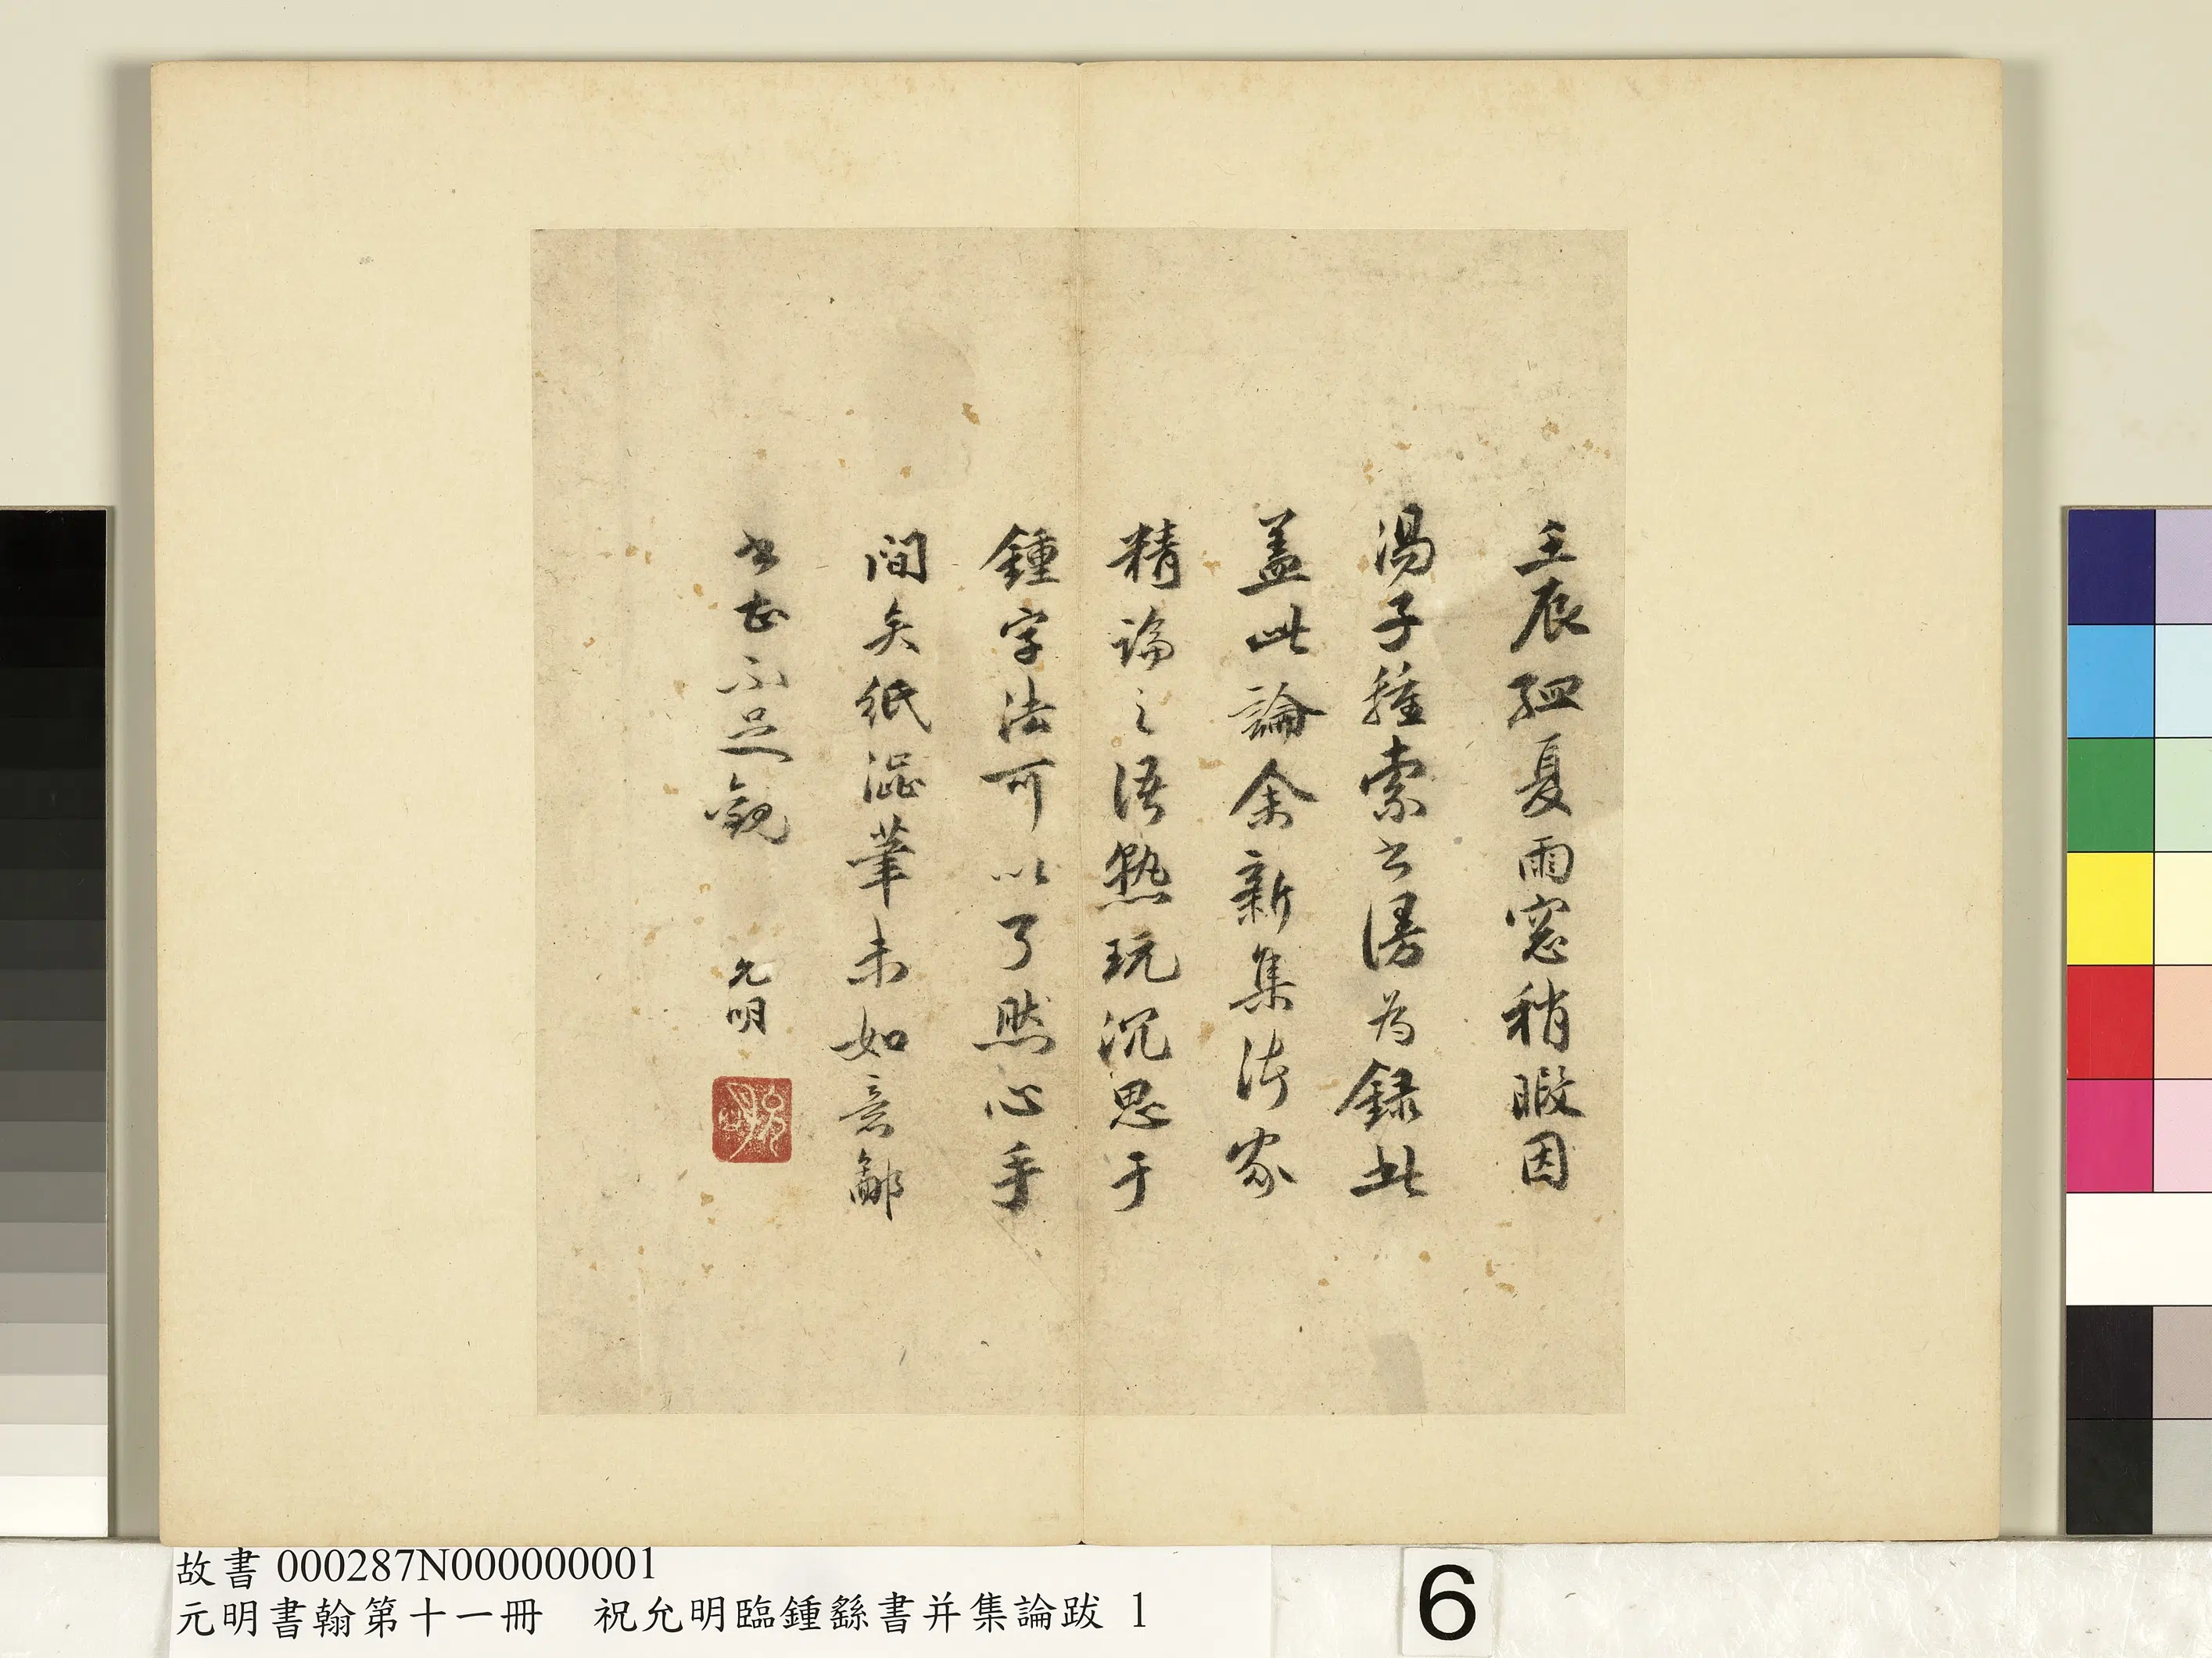 壬辰孟夏雨窓稍暇因
湯子種索书漫為録此
盖此論余新集诸家
精論之语熟玩沉思于
鍾字法可以了然心手
間矣紙澁筆未如意鄙
书甚不足觀
允明
故書 000287N000000001
元明書翰第十一冊 祝允明臨鍾繇書并集論跋 1
6